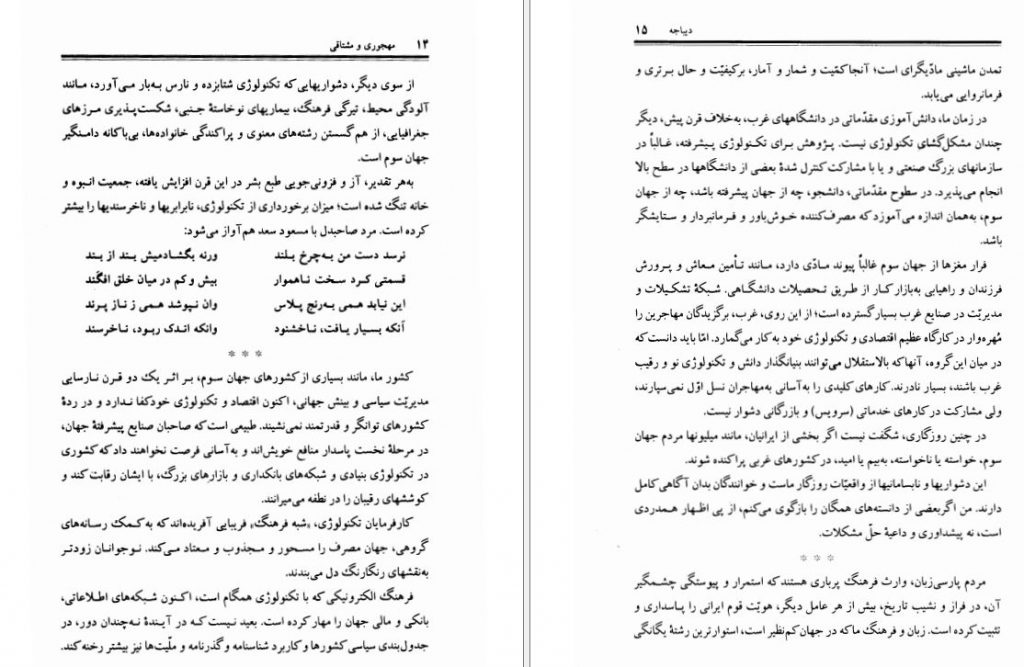 ۱۴ مهجوری و مشتاقی
از سوی دیگر، دشواریهایی که تکنولوژی شتابزده و نارس به‌بار می‌آورد، مانند
آلودگی محیط، تیرگی فرهنگ، بیماریهای نوخاستهٔ جنبی، شکست‌پذیری مرزهای
جغرافیایی، از هم گسستن رشته‌های معنوی و پراکندگی خانواده‌ها، بی‌باکانه دامنگیر
جهان سوم است.
به‌هر تقدیر، آز و فزونی‌جویی طبع بشر در این قرن افزایش یافته، جمعیت انبوه و
خانه تنگ شده است؛ میزان برخورداری از تکنولوژی، نابرابریها و ناخرسندیها را بیشتر
کرده است. مرد صاحبدل با مسعود سعد هم‌آواز می‌شود:
نرسد دست من به‌چرخ بلند ورنه بگشادمیش بند از بند
قسمتی کرد سخت ناهموار بیش و کم در میان خلق افگند
این نیابد همی به‌رنج پلاس وان نپوشد همی ز ناز پرند
آنکه بسیار یافت، ناخشنود وانکه اندک ربود، ناخرسند
* * *
کشور ما، مانند بسیاری از کشورهای جهان سوم، بر اثر یک دو قرن نارسایی
مدیریّت سیاسی و بینش جهانی، اکنون اقتصاد و تکنولوژی خودکفا ندارد و در ردهٔ
کشورهای توانگر و قدرتمند نمی‌نشیند. طبیعی است که صاحبان صنایع پیشرفتهٔ جهان،
در مرحلهٔ نخست پاسدار منافع خویش‌اند و به‌آسانی فرصت نخواهند داد که کشوری
در تکنولوژی بنیادی و شبکه‌های بانکداری و بازارهای بزرگ، با ایشان رقابت کند و
کوششهای رقیبان را در نطفه می‌میرانند.
کارفرمایان تکنولوژی، «شبه فرهنگ» فریبایی آفریده‌اند که به‌کمک رسانه‌های
گروهی، جهان مصرف را مسحور و مجذوب و معتاد می‌کند. نوجوانان زودتر
به‌نقشهای رنگارنگ دل می‌بندند.
فرهنگ الکترونیکی که با تکنولوژی همگام است، اکنون شبکه‌های اطلاعاتی،
بانکی و مالی جهان را مهار کرده است. بعید نیست که در آیندهٔ نه‌چندان دور، در
جدول‌بندی سیاسی کشورها و کاربرد شناسنامه و گذرنامه و ملّیت‌ها نیز بیشتر رخنه کند.
دیباجه ۱۵
تمدن ماشینی مادّیگرای است؛ آنجا کمّیت و شمار و آمار، برکیفیّت و حال برتری و
فرمانروایی می‌یابد.
در زمان ما، دانش‌آموزی مقدّماتی در دانشگاههای غرب، به‌خلاف قرن پیش، دیگر
چندان مشکل‌گشای تکنولوژی نیست. پژوهش برای تکنولوژی پیشرفته، غالباً در
سازمانهای بزرگ صنعتی و یا با مشارکت کنترل شدهٔ بعضی از دانشگاهها در سطح بالا
انجام می‌پذیرد. در سطوح مقدّماتی، دانشجو، چه از جهان پیشرفته باشد، چه از جهان
سوم، به‌همان اندازه می‌آموزد که مصرف‌کننده خوش‌باور و فرمانبردار و ستایشگر
باشد.
فرار مغزها از جهان سوم غالباً پیوند مادّی دارد، مانند تأمین معاش و پرورش
فرزندان و راهیابی به‌بازار کار از طریق تحصیلات دانشگاهی. شبکهٔ تشکیلات و
مدیریّت در صنایع غرب بسیار گسترده است؛ از این روی، غرب، برگزیدگان مهاجرین را
مُهره‌وار در کارگاه عظیم اقتصادی و تکنولوژی خود به کار می‌گمارد. امّا باید دانست که
در میان این گروه، آنها که بالاستقلال می‌توانند بنیانگذار دانش و تکنولوژی نو و رقیب
غرب باشند، بسیار نادرند. کارهای کلیدی را به‌آسانی به‌مهاجران نسل اوّل نمی‌سپارند،
ولی مشارکت در کارهای خدماتی (سرویس) و بازرگانی دشوار نیست.
در چنین روزگاری، شگفت نیست اگر بخشی از ایرانیان، مانند میلیونها مردم جهان
سوم، خواسته یا ناخواسته، به‌بیم یا امید، در کشورهای غربی پراکنده شوند.
این دشواریها و نابسامانیها از واقعیّات روزگار ماست و خوانندگان بدان آگاهی کامل
دارند. من اگر بعضی از دانسته‌های همگان را بازگوی می‌کنم، از پی اظهار همدردی
است، نه پیشداوری و داعیهٔ حلّ مشکلات.
* * *
مردم پارسی‌زبان، وارث فرهنگ پرباری هستند که استمرار و پیوستگی چشمگیر
آن، در فراز و نشیب تاریخ، بیش از هر عامل دیگر، هویّت قوم ایرانی را پاسداری و
تثبیت کرده است. زبان و فرهنگ ما که در جهان کم‌نظیر است، استوارترین رشتهٔ یگانگی